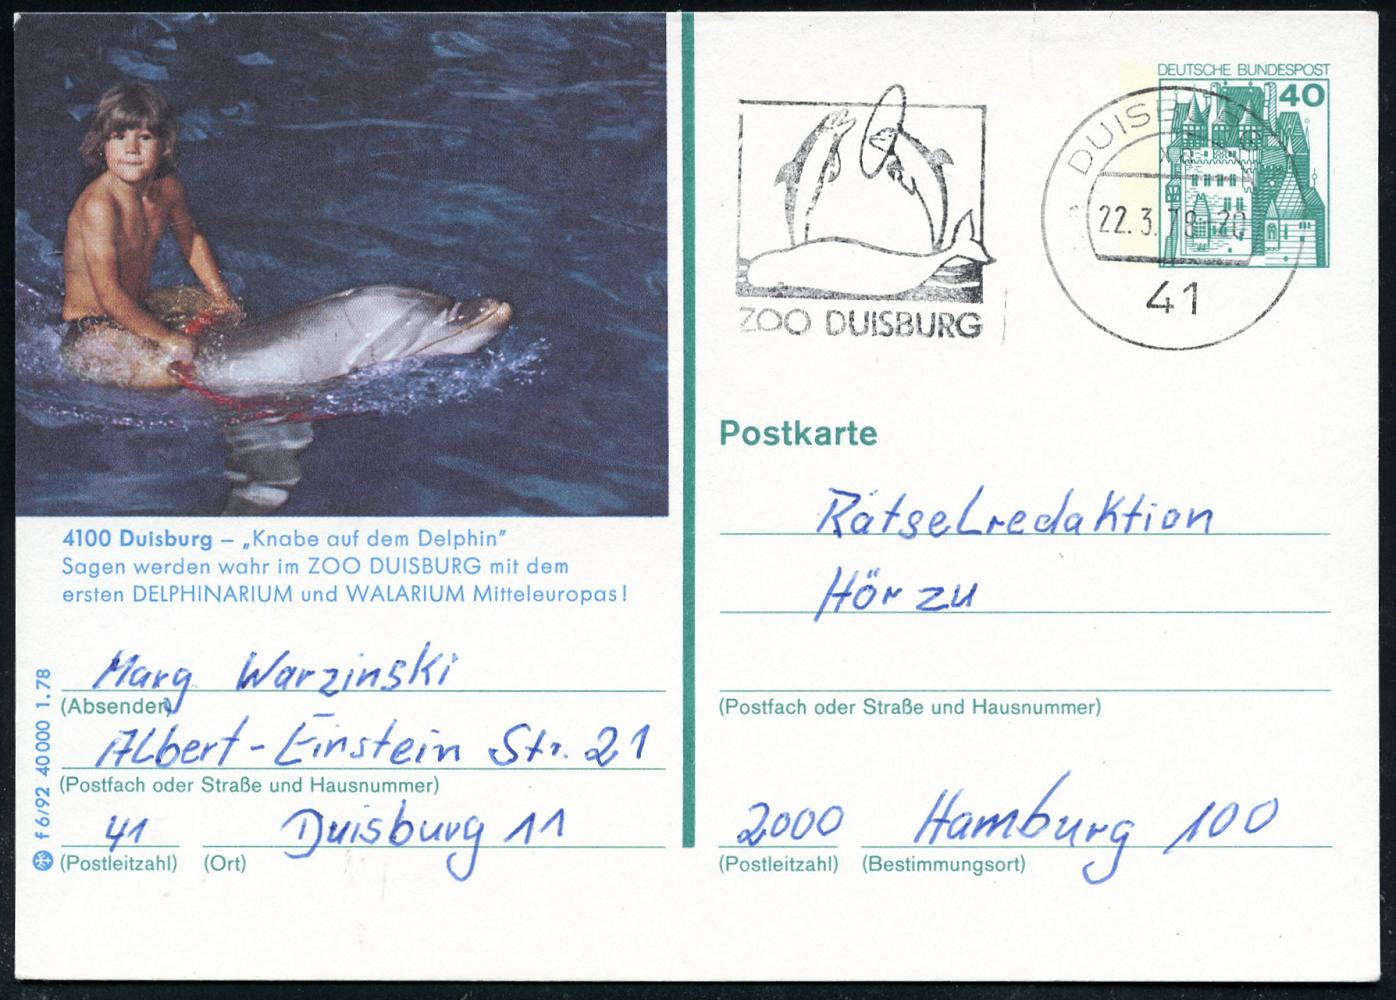 4100 Duisburg – „Knabe auf dem Delphin”
Sagen werden wahr im ZOO DUISBURG mit dem
ersten DELPHINARIUM und WALARIUM Mitteleuropas!
Marg Warzinski
(Absender)
Albert-Einstein Str. 21
(Postfach oder Straße und Hausnummer)
41 Duisburg 11
(Postleitzahl) (Ort)
f 6/92 40 000 1.78
ZOO DUISBURG
DEUTSCHE BUNDESPOST
40
22. 3. 78-20
41
Postkarte
Rätselredaktion
Hör zu
(Postfach oder Straße und Hausnummer)
2000 Hamburg 100
(Postleitzahl) (Bestimmungsort)